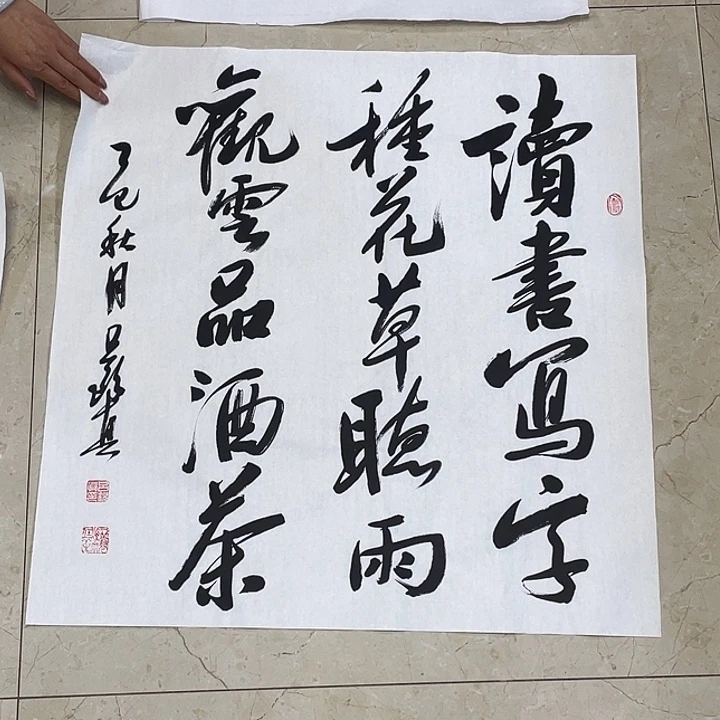 讀書寫字
種花草聽雨
觀雲品酒茶
秋月